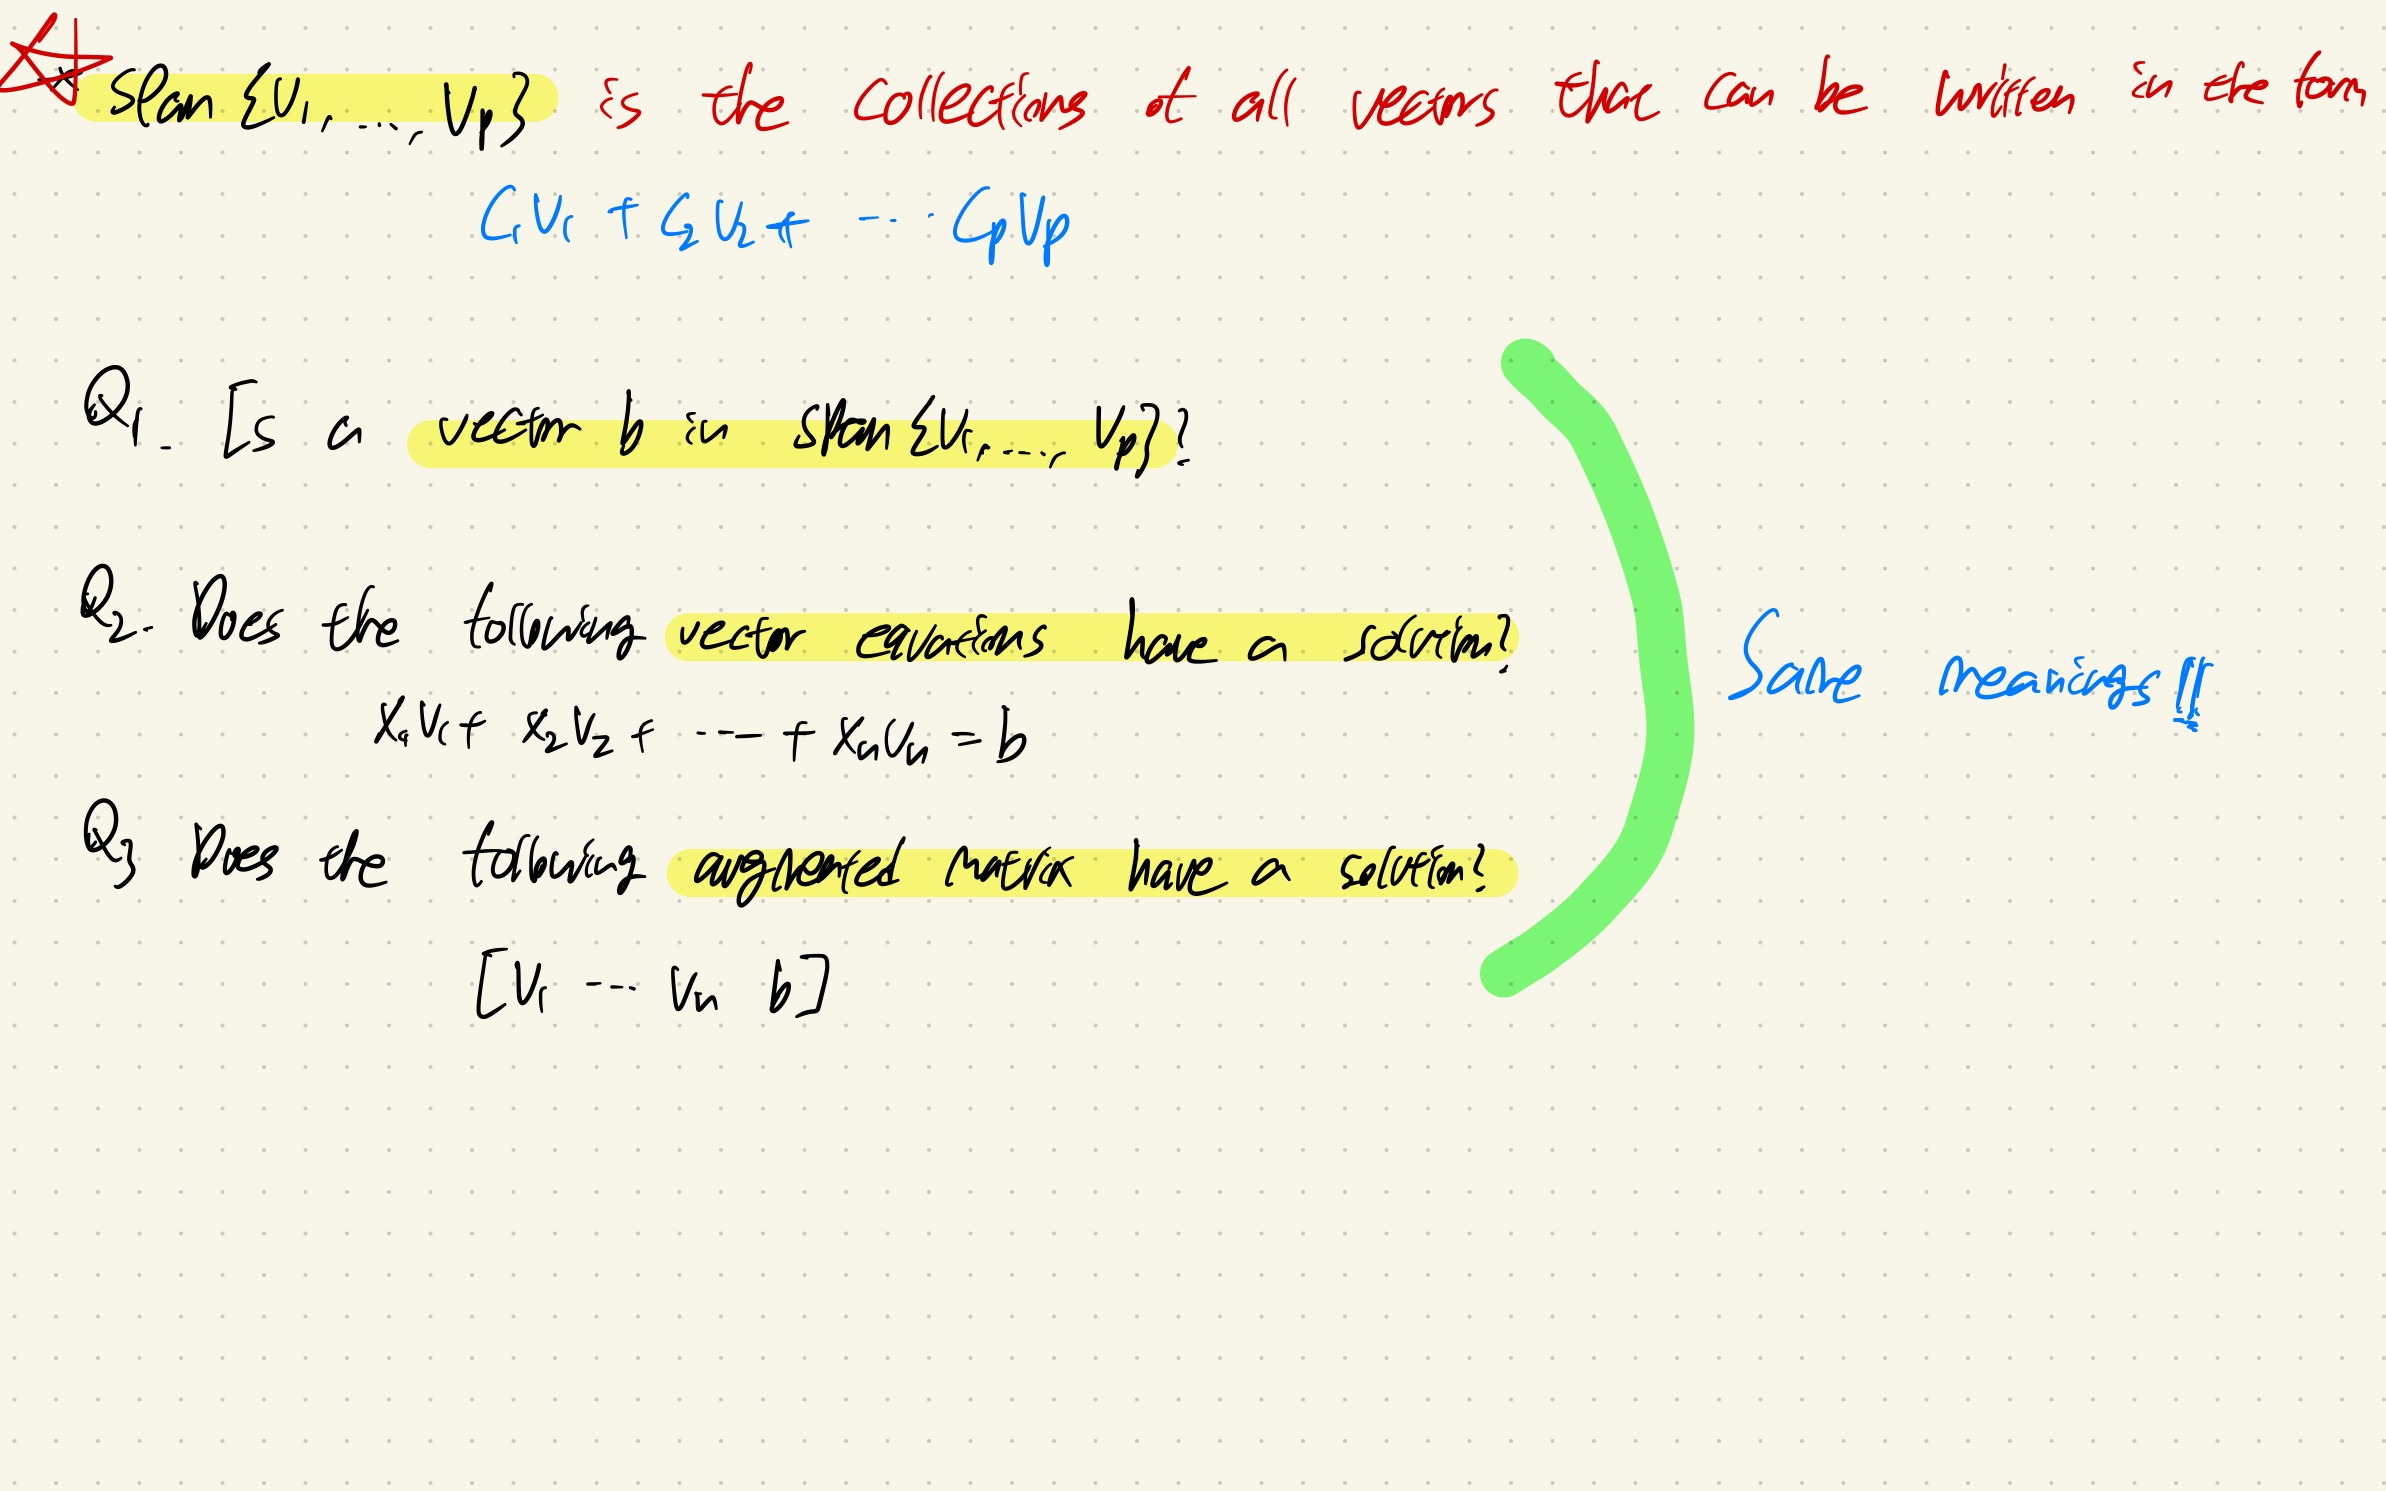 * Span {V1, ..., Vp} is the collections of all vectors that can be written in the form
C1V1 + C2V2 + ... CpVp
Q1. Is a vector b in span {V1, ..., Vp}?
Q2. Does the following vector equations have a solution?
X1V1 + X2V2 + ... + XnVn = b
Same meanings!!
Q3 Does the following augmented matrix have a solution?
[V1 ... Vn b]